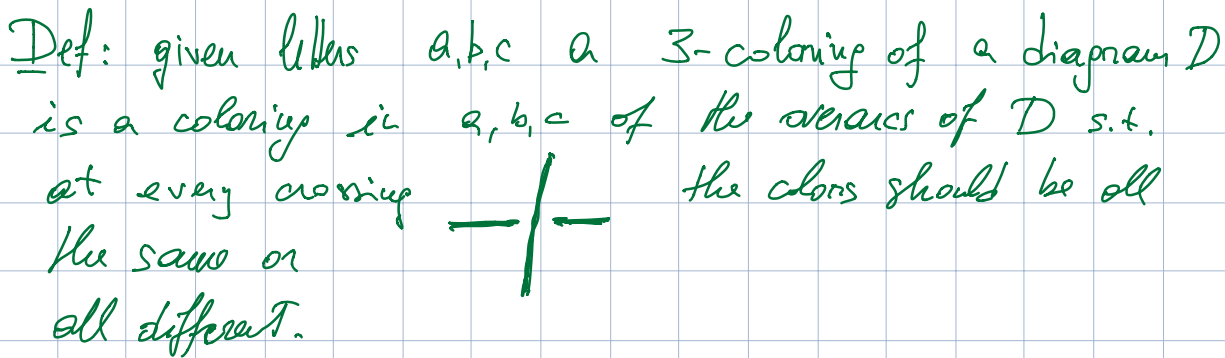 Def: given letters a,b,c a 3-coloring of a diagram D
is a coloring in a,b,c of the overarcs of D s.t.
at every crossing the colors should be all
the same or
all different.